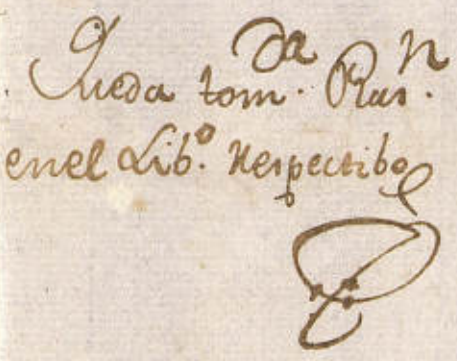 Queda tom.da Ras.n
en el Lib.o Respectibo